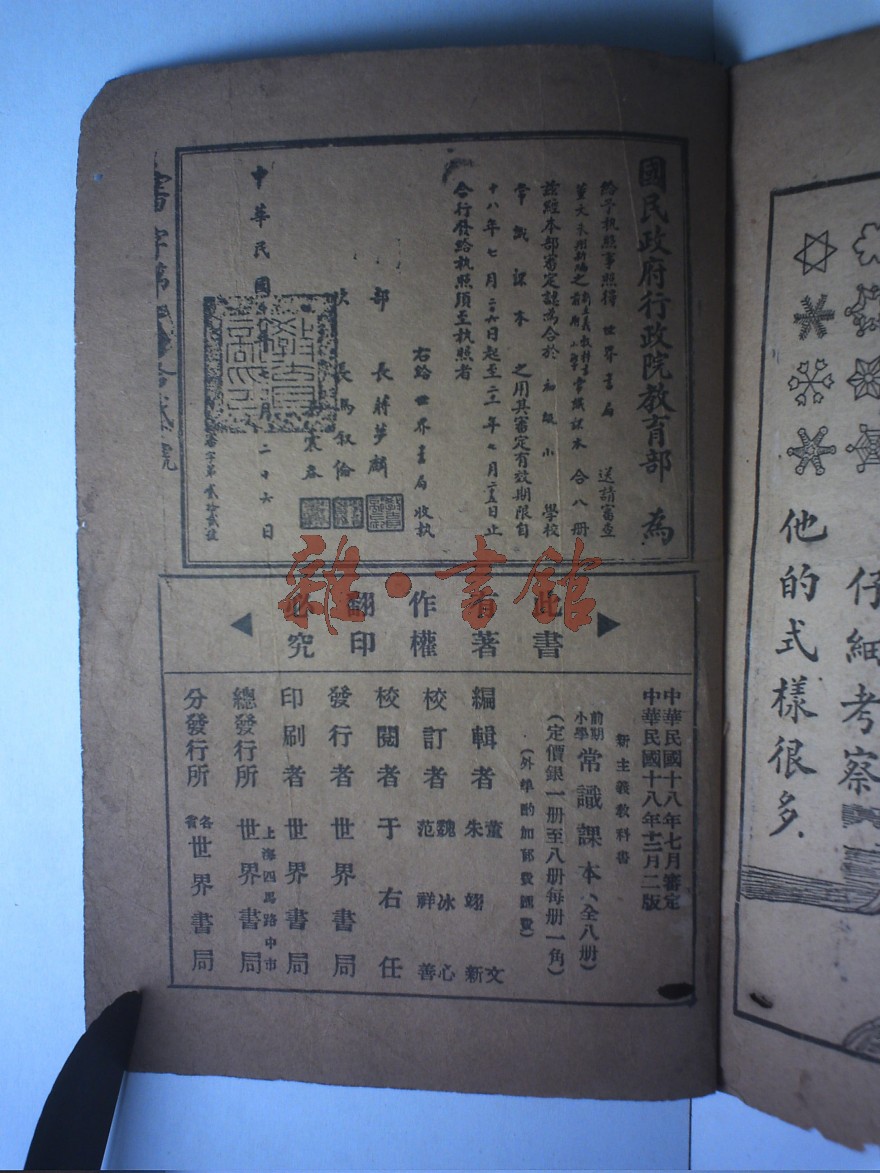 國民政府行政院教育部 為
給予執照事照得 世界書局 送請審查
董文 朱翊新編之 新主義教科書 前期小學 常識課本 合八册
茲經本部審定認為合於 初級小 學校
常識課本 之用其審定有效期限自
十八年七月二十六日起至二十一年七月二十五日止
合行發給執照須至執照者
右給世界書局收執
部 長蔣夢麟
次 長馬叙倫
中華民國
月二十六日
字第貳拾貳號
此書
有著
作權
翻印
必究
中華民國十八年七月審定
中華民國十八年十二月二版
新主義教科書
前期小學 常識課本(全八册)
(定價銀一册至八册每册一角)
(外埠酌加郵費匯費)
編輯者 董文 朱翊新
校訂者 魏冰心 范祥善
校閱者 于右任
發行者 世界書局
印刷者 世界書局
上海四馬路中市
總發行所 世界書局
分發行所 各省 世界書局
雜·書館
仔細考察
他的式樣很多.